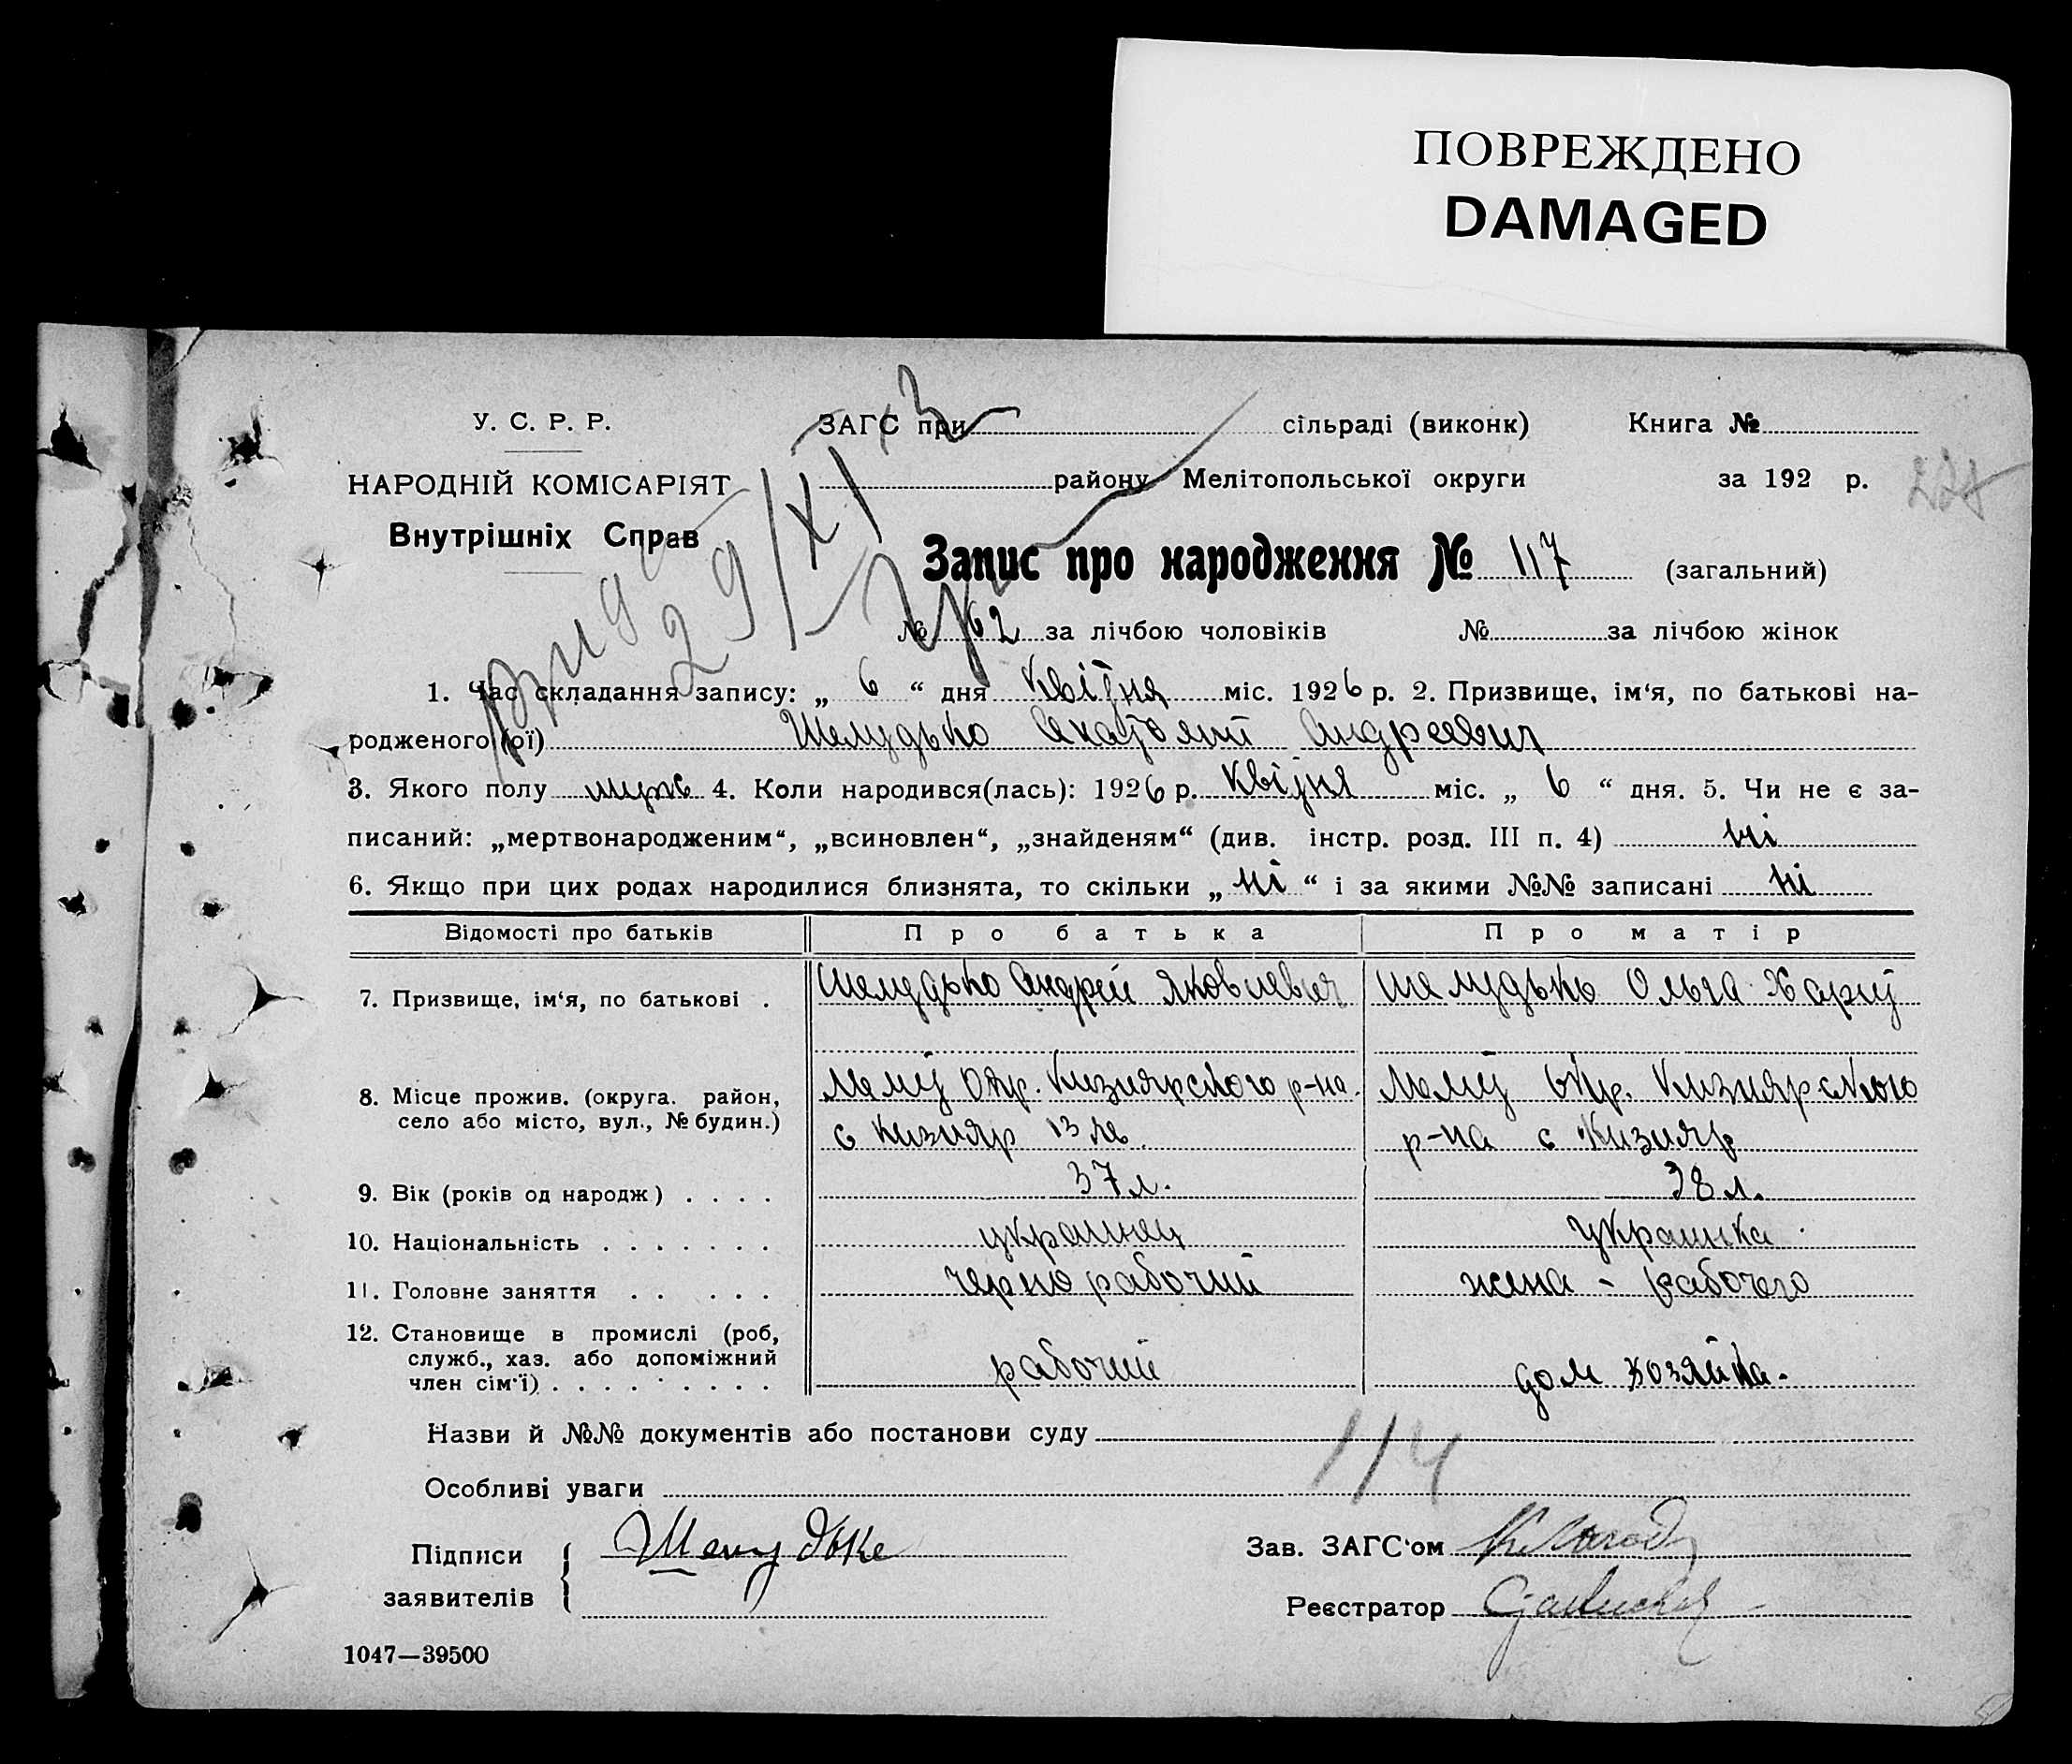 ПОВРЕЖДЕНО
DAMAGED
У. С. Р. Р.
НАРОДНІЙ КОМІСАРІЯТ
Внутрішніх Справ
ЗАГС при сільраді (виконк) Книга №
району Мелітопольської округи за 192 р.
29/XI
Запис про народження № 117 (загальний)
№ 62 за лічбою чоловіків № за лічбою жінок
1. Час складання запису: „ 6 “ дня квітня міс. 1926 р. 2. Призвище, ім‘я, по батькові на-
родженого(ої) Шелудько Андреевич
3. Якого полу муж 4. Коли народився(лась): 1926 р. квітня міс. „ 6 “ дня. 5. Чи не є за-
писаний: „мертвонародженим“, „всиновлен“, „знайденям“ (див. інстр. розд. III п. 4) ні
6. Якщо при цих родах народилися близнята, то скільки „ ні “ і за якими №№ записані ні
Відомості про батьків Про батька Про матір
7. Призвище, ім‘я, по батькові . Шелудько Андрей Яковлевич Шелудько Ольга Харит
8. Місце прожив. (округа. район,
село або місто, вул., № будин.)
Мелит Окр. Кизиярского р-на.
с Кизияр 13
Мелит Окр. Кизиярского
р-на с Кизияр
9. Вік (років од народж) . . . . 37 л. 38 л.
10. Національність . . . . . . . украинец украинка
11. Головне заняття . . . . . чернорабочий жена - рабочего
12. Становище в промислі (роб,
служб., хаз. або допоміжний
член сім‘ї) . . . . . . . . .
рабочий
дом хозяйка.
Назви й №№ документів або постанови суду
114
Особливі уваги
Підписи
заявителів
Шелудьке
Зав. ЗАГС‘ом
Реєстратор
1047—39500